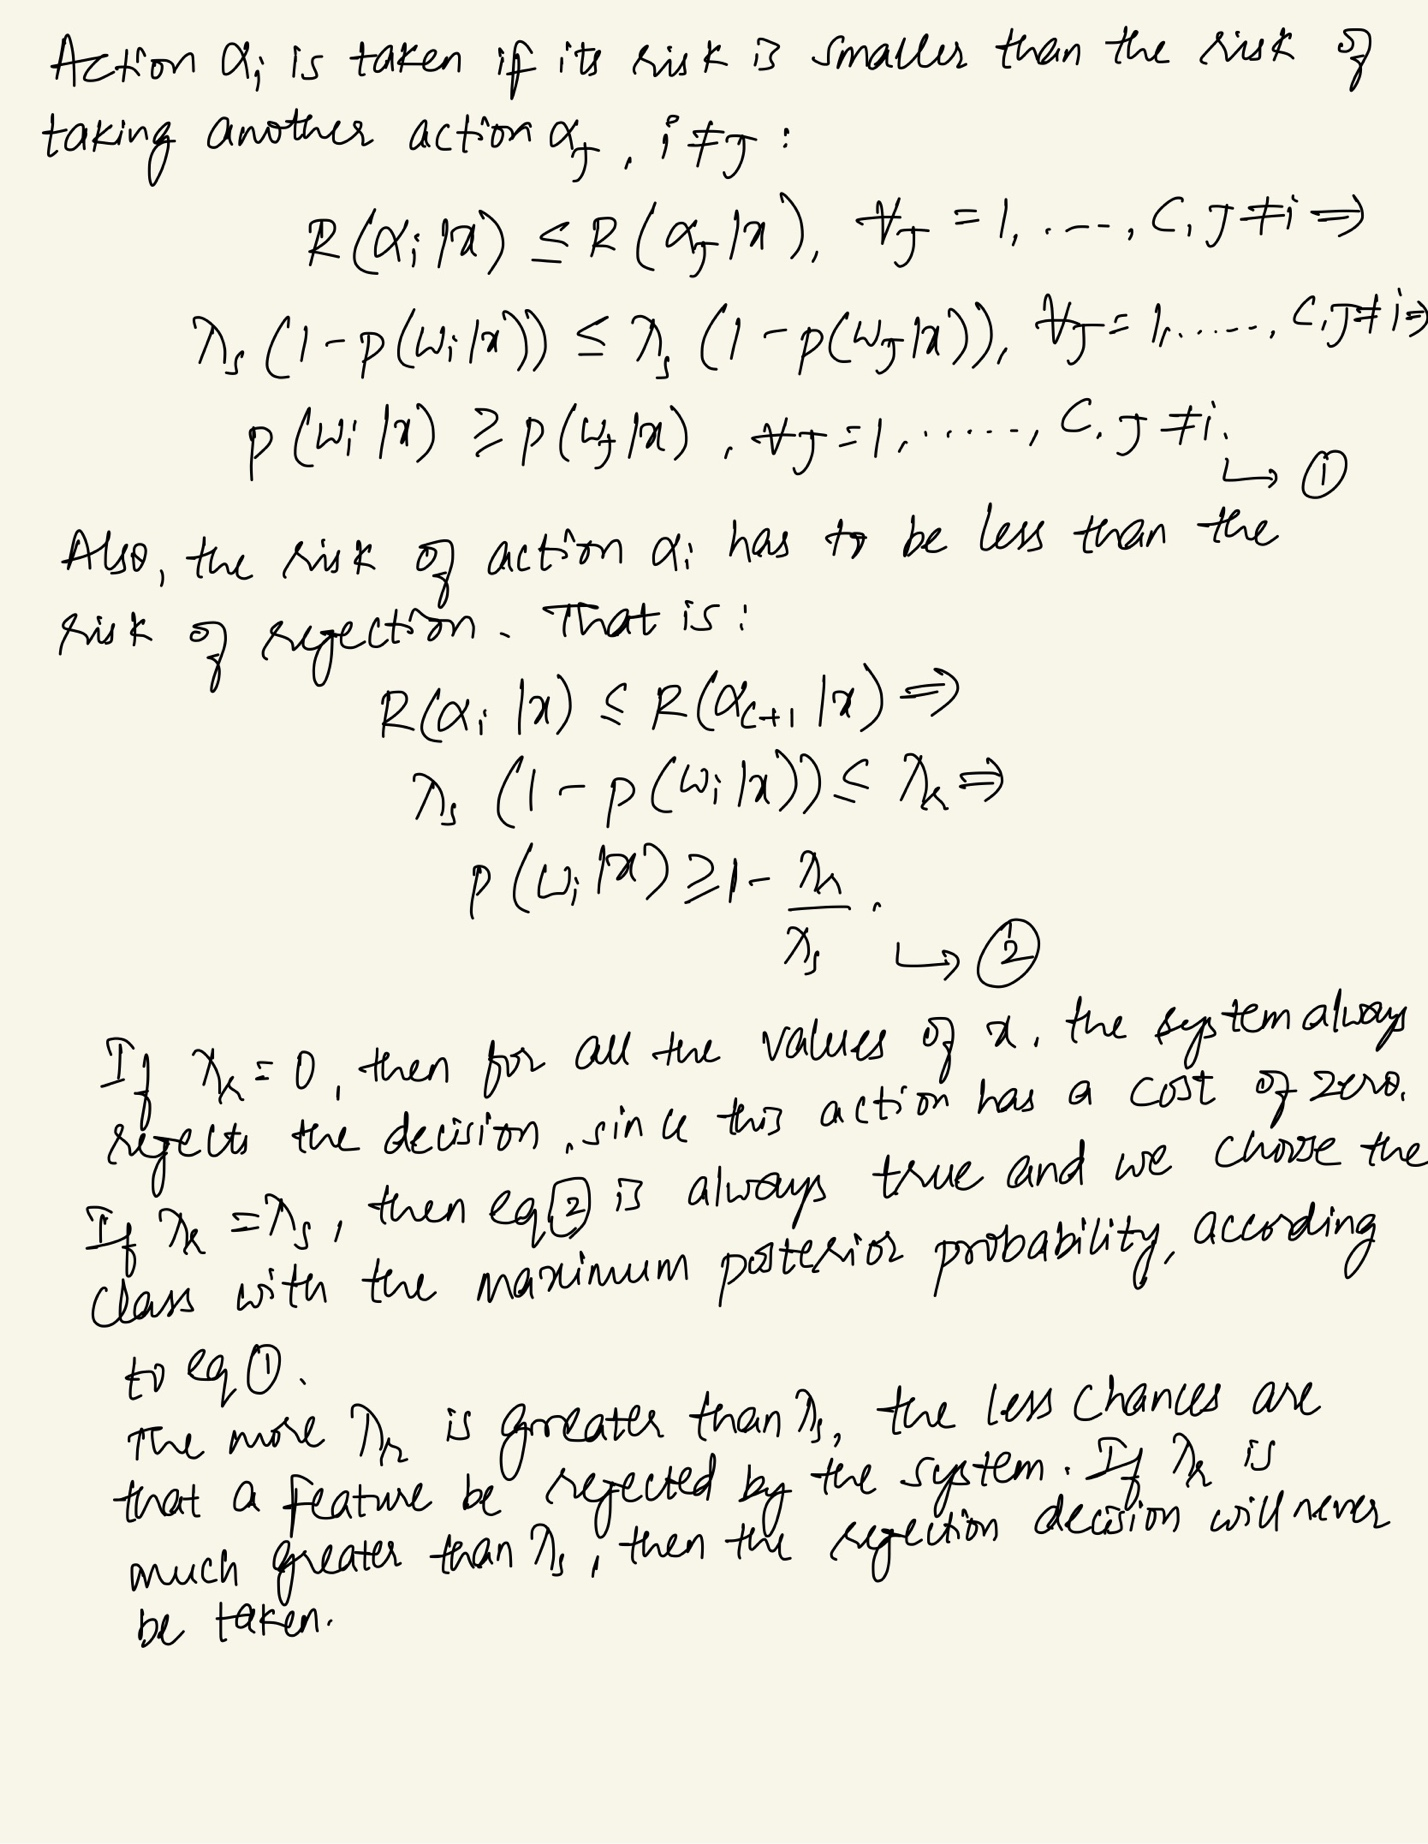 Action αi is taken if its risk is smaller than the risk of
taking another action αJ, i ≠ J :
R(αi |x) ≤ R(αJ |x), ∀J = 1, ...., C, J ≠ i ⇒
λs (1 - p(ωi |x)) ≤ λs (1 - p(ωJ |x)), ∀J = 1, ......, C, J ≠ i ⇒
p(ωi |x) ≥ p(ωJ |x), ∀J = 1, ......, C, J ≠ i.
↳ ①
Also, the risk of action αi has to be less than the
risk of rejection. That is :
R(αi |x) ≤ R(αc+1 |x) ⇒
λs (1 - p(ωi |x)) ≤ λr ⇒
p(ωi |x) ≥ 1 - λr/λs .
↳ ②
If λr = 0, then for all the values of x, the system always
rejects the decision, since this action has a cost of zero.
If λr = λs, then eq ② is always true and we choose the
class with the maximum posterior probability, according
to eq ①.
The more λr is greater than λs, the less chances are
that a feature be rejected by the system. If λr is
much greater than λs, then the rejection decision will never
be taken.